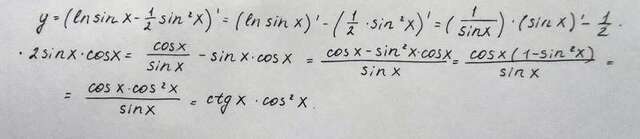 y = (ln sin x - 1/2 sin²x)' = (ln sin x)' - (1/2 · sin²x)' = (1/sin x) · (sin x)' - 1/2 ·
· 2 sin x · cos x = cos x/sin x - sin x · cos x = (cos x - sin²x · cos x)/sin x = cos x (1 - sin²x)/sin x =
= cos x · cos²x/sin x = ctg x · cos²x.